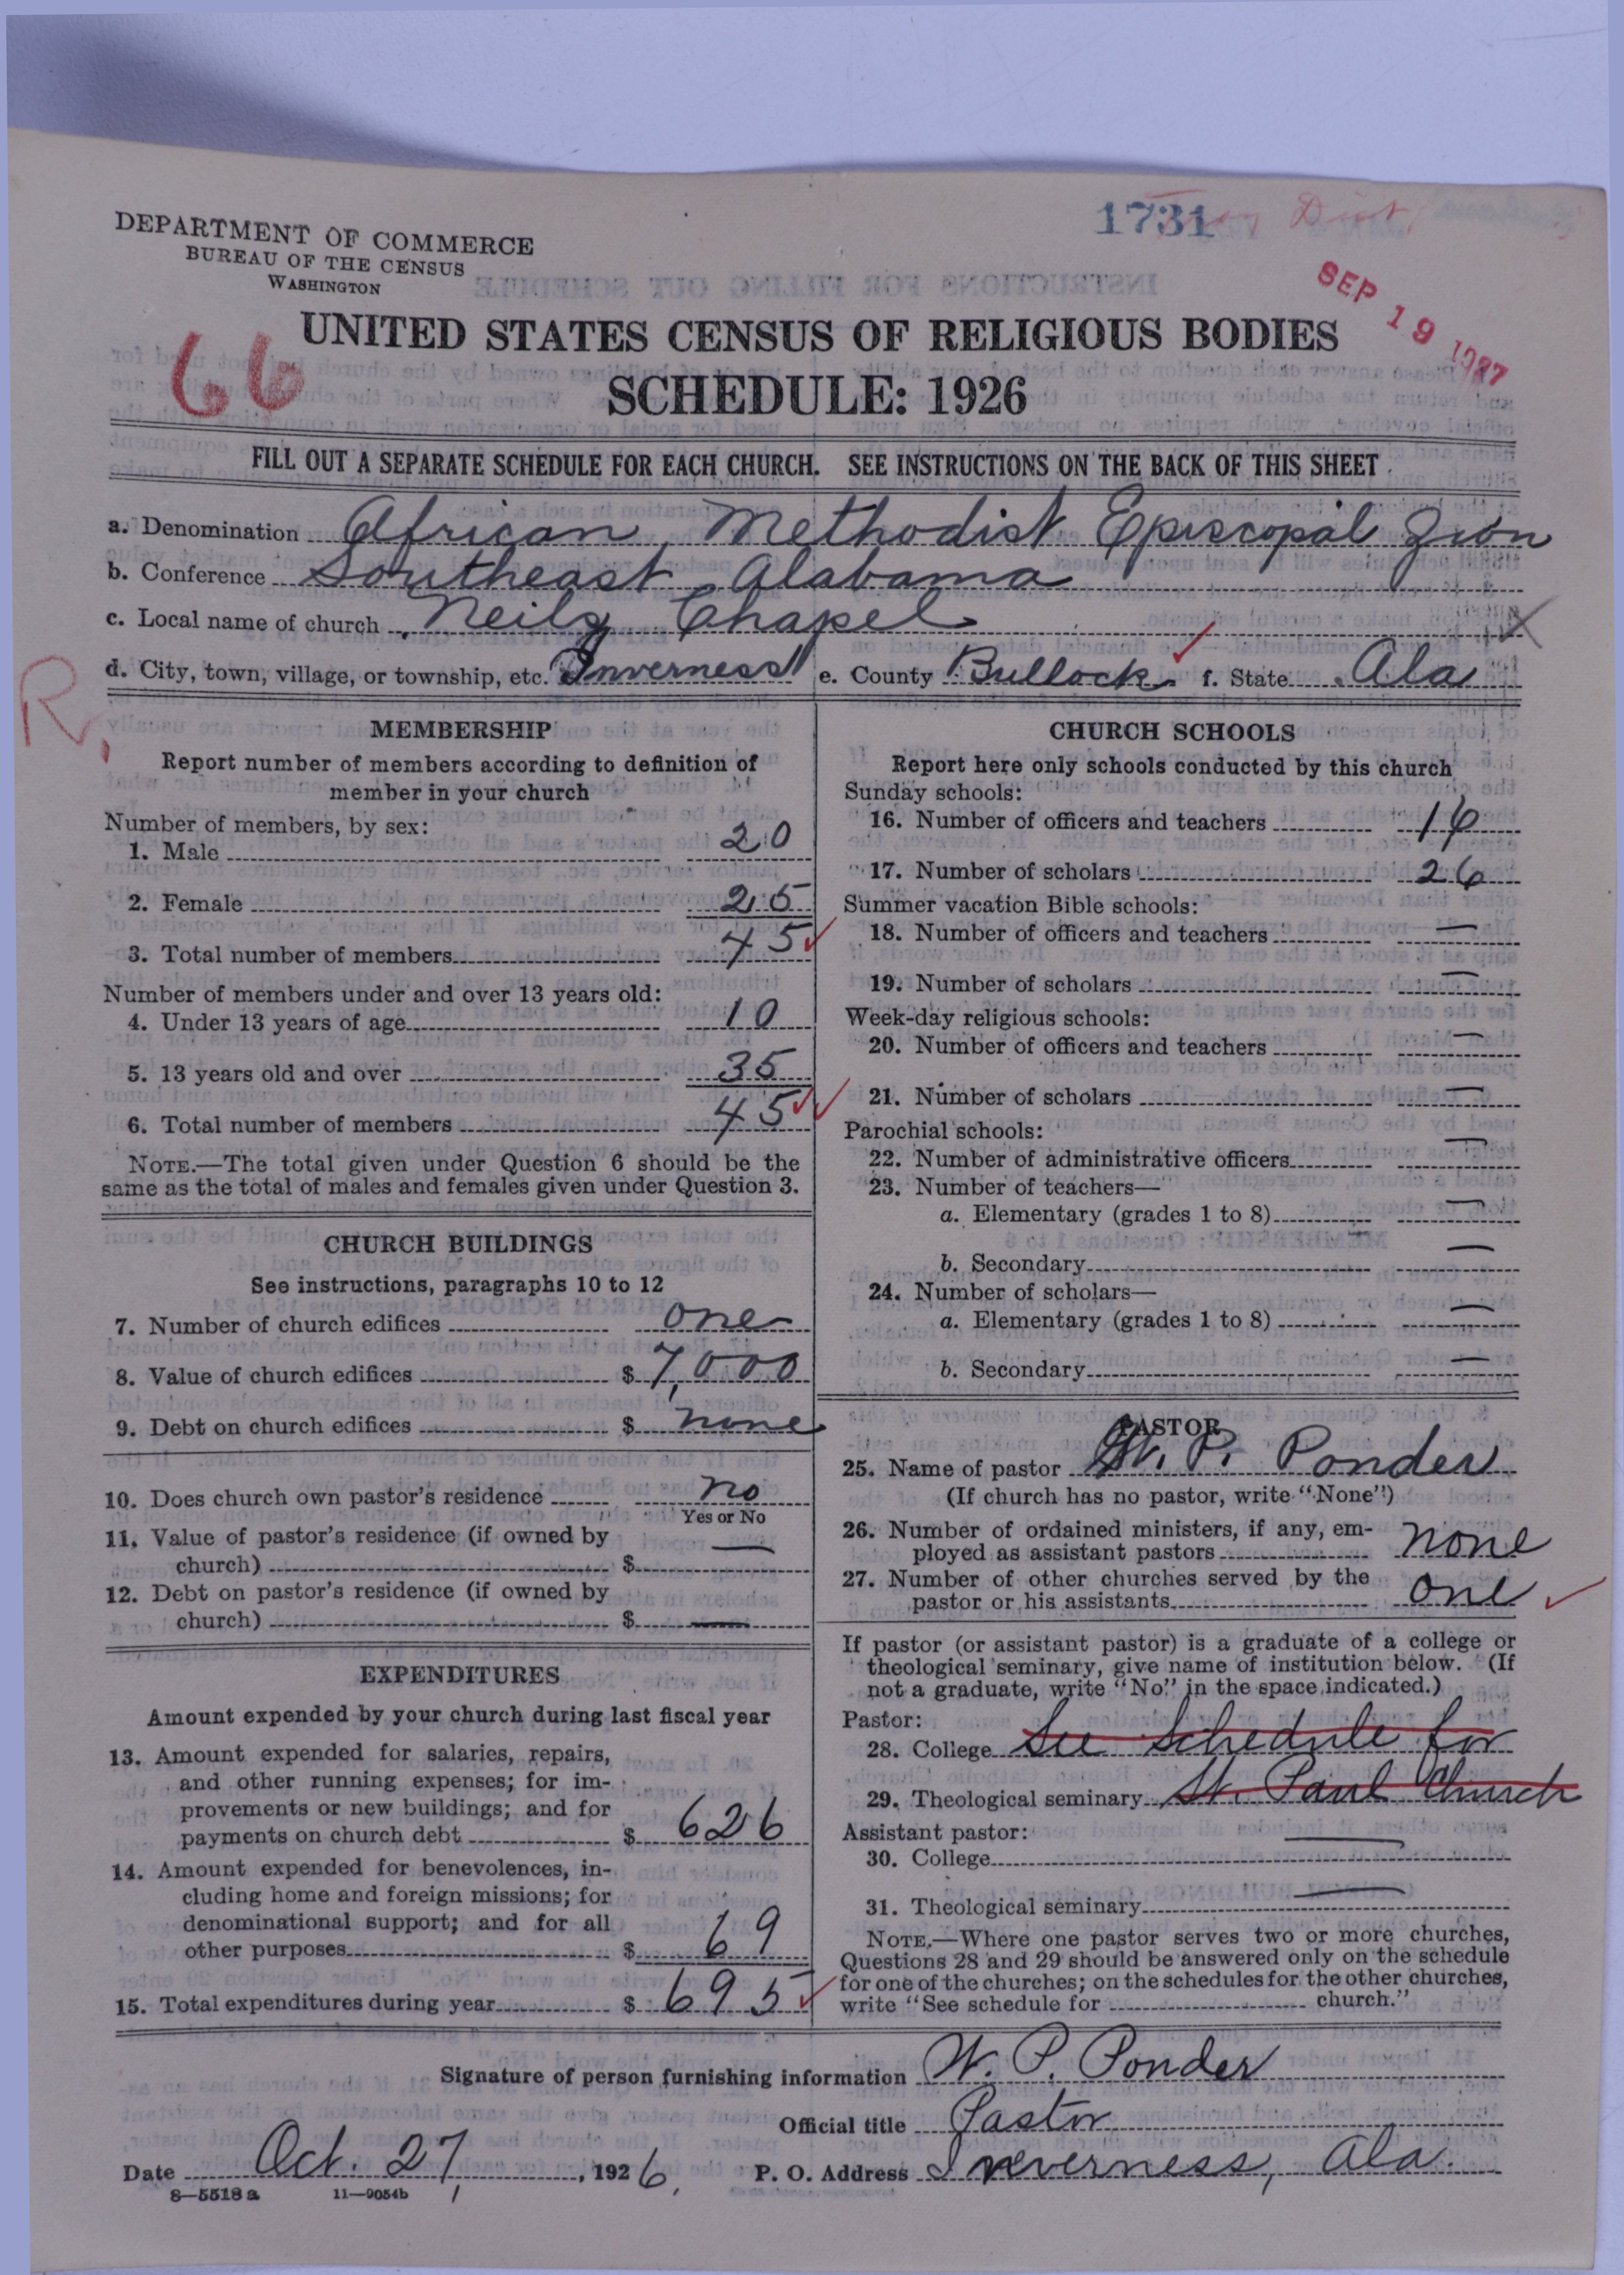 1731
DEPARTMENT OF COMMERCE
BUREAU OF THE CENSUS
WASHINGTON
SEP 19 1927
66
UNITED STATES CENSUS OF RELIGIOUS BODIES
SCHEDULE: 1926
FILL OUT A SEPARATE SCHEDULE FOR EACH CHURCH. SEE INSTRUCTIONS ON THE BACK OF THIS SHEET
a. Denomination African Methodist Episcopal Zion
b. Conference Southeast Alabama
c. Local name of church Neily Chapel
d. City, town, village, or township, etc. Inverness e. County Bullock f. State Ala
R.
MEMBERSHIP
Report number of members according to definition of
member in your church
Number of members, by sex:
1. Male 20
2. Female 25
3. Total number of members 45
Number of members under and over 13 years old:
4. Under 13 years of age 10
5. 13 years old and over 35
6. Total number of members 45
NOTE.—The total given under Question 6 should be the
same as the total of males and females given under Question 3.
CHURCH BUILDINGS
See instructions, paragraphs 10 to 12
7. Number of church edifices one
8. Value of church edifices $ 7,000
9. Debt on church edifices $ none
10. Does church own pastor's residence no
Yes or No
11. Value of pastor's residence (if owned by
church) $ —
12. Debt on pastor's residence (if owned by
church) $ —
EXPENDITURES
Amount expended by your church during last fiscal year
13. Amount expended for salaries, repairs,
and other running expenses; for im-
provements or new buildings; and for
payments on church debt $ 626
14. Amount expended for benevolences, in-
cluding home and foreign missions; for
denominational support; and for all
other purposes $ 69
15. Total expenditures during year $ 695
CHURCH SCHOOLS
Report here only schools conducted by this church
Sunday schools:
16. Number of officers and teachers 16
17. Number of scholars 26
Summer vacation Bible schools:
18. Number of officers and teachers —
19. Number of scholars —
Week-day religious schools:
20. Number of officers and teachers —
21. Number of scholars —
Parochial schools:
22. Number of administrative officers —
23. Number of teachers—
a. Elementary (grades 1 to 8) —
b. Secondary —
24. Number of scholars—
a. Elementary (grades 1 to 8) —
b. Secondary —
PASTOR
25. Name of pastor W. P. Ponder
(If church has no pastor, write "None")
26. Number of ordained ministers, if any, em-
ployed as assistant pastors none
27. Number of other churches served by the
pastor or his assistants one
If pastor (or assistant pastor) is a graduate of a college or
theological seminary, give name of institution below. (If
not a graduate, write "No" in the space indicated.)
Pastor:
28. College See Schedule for
29. Theological seminary St. Paul Church
Assistant pastor:
30. College —
31. Theological seminary —
NOTE.—Where one pastor serves two or more churches,
Questions 28 and 29 should be answered only on the schedule
for one of the churches; on the schedules for the other churches,
write "See schedule for church."
Signature of person furnishing information W. P. Ponder
Official title Pastor
Date Oct. 27, 1926. P. O. Address Inverness, Ala.
8—5518 a 11—9054b